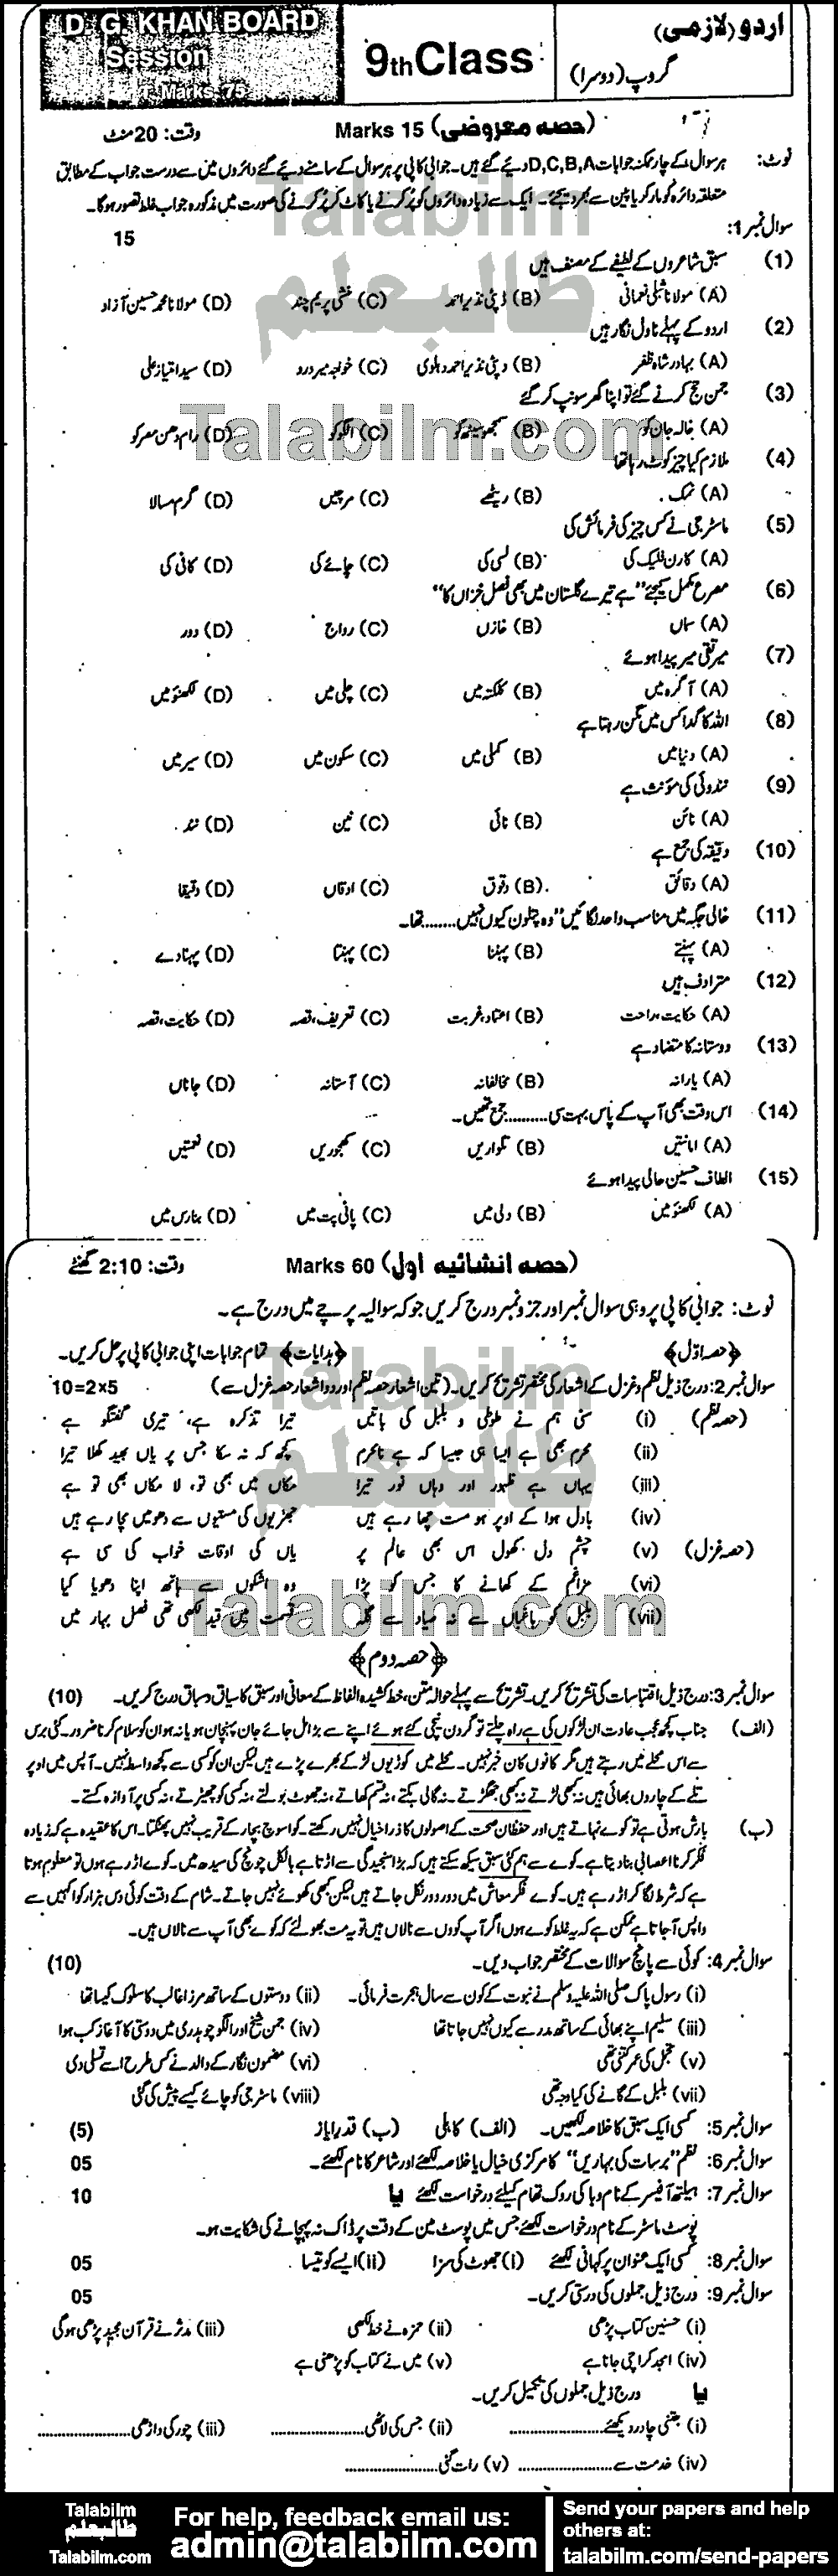 D. G. KHAN BOARD
Session
T. Marks. 75
9th Class
اردو (لازمی)
گروپ (دوسرا)
(حصہ معروضی) Marks 15 وقت: 20 منٹ
نوٹ: ہر سوال کے چار ممکنہ جوابات D,C,B,A دیے گئے ہیں۔ جوابی کاپی پر ہر سوال کے سامنے دیے گئے دائروں میں سے درست جواب کے مطابق
متعلقہ دائرہ کو مارکر یا پین سے بھر دیجئے۔ ایک سے زیادہ دائروں کو پُر کرنے یا کاٹ کر پُر کرنے کی صورت میں مذکورہ جواب غلط تصور ہوگا۔
سوال نمبر 1: 15
(1) سبق شاعروں کے لطیفے کے مصنف ہیں
(A) مولانا شبلی نعمانی (B) ڈپٹی نذیر احمد (C) منشی پریم چند (D) مولانا محمد حسین آزاد
(2) اردو کے پہلے ناول نگار ہیں
(A) بہادر شاہ ظفر (B) ڈپٹی نذیر احمد دہلوی (C) خواجہ میر درد (D) سید امتیاز علی
(3) جمن حج کرنے گئے تو اپنا گھر سونپ کر گئے
(A) خالہ جان کو (B) سمجھو سیٹھ کو (C) الگو کو (D) رام دھن مصر کو
(4) ملازم کیا چیز کوٹ رہا تھا
(A) نمک (B) ریٹھے (C) مرچیں (D) گرم مسالا
(5) ماسٹر جی نے کس چیز کی فرمائش کی
(A) کارن فلیک کی (B) لسی کی (C) چائے کی (D) کافی کی
(6) مصرع مکمل کیجئے "ہے تیرے گلستان میں بھی فصل خزاں کا"
(A) سماں (B) خازن (C) رواج (D) دور
(7) میر تقی میر پیدا ہوئے
(A) آگرہ میں (B) کلکتہ میں (C) دلی میں (D) لکھنؤ میں
(8) اللہ کا گدا کس میں مگن رہتا ہے
(A) دنیا میں (B) کملی میں (C) سکون میں (D) سیر میں
(9) نندوئی کی مؤنث ہے
(A) نائن (B) نائی (C) نین (D) نند
(10) دقیقہ کی جمع ہے
(A) دقائق (B) دقوق (C) ادقاں (D) دقیقا
(11) خالی جگہ میں مناسب واحد لگائیں "وہ پتلون کیوں نہیں........تھا۔
(A) پہنے (B) پہننا (C) پہنتا (D) پہنا دے
(12) مترادف ہیں
(A) حکایت، مداحت (B) اعتماد، غربت (C) تعریف، قصہ (D) حکایت، قصہ
(13) دوستانہ کا متضاد ہے
(A) یارانہ (B) مخالفانہ (C) آستانہ (D) جاناں
(14) اس وقت بھی آپ کے پاس بہت سی..........جمع تھیں۔
(A) امانتیں (B) تلواریں (C) کھجوریں (D) نعمتیں
(15) الطاف حسین حالی پیدا ہوئے
(A) لکھنؤ میں (B) دلی میں (C) پانی پت میں (D) بنارس میں
(حصہ انشائیہ اول) Marks 60 وقت: 2:10 گھنٹے
نوٹ: جوابی کاپی پر وہی سوال نمبر اور جزو نمبر درج کریں جو کہ سوالیہ پرچے میں درج ہے۔
﴿حصہ اول﴾ ﴿ہدایات﴾ تمام جوابات اپنی جوابی کاپی پر حل کریں۔
سوال نمبر 2: درج ذیل نظم و غزل کے اشعار کی مختصر تشریح کریں۔ (تین اشعار حصہ نظم اور دو اشعار حصہ غزل سے) 10=2x5
(حصہ نظم) (i) سنی ہم نے طوطی و بلبل کی باتیں تیرا تذکرہ ہے، تیری گفتگو ہے
(ii) محرم بھی ہے ایسا ہی جیسا کہ ہے نامحرم کچھ کہ نہ سکا جس پر یاں بھید کھلا تیرا
(iii) یہاں ہے ظہور اور وہاں نور تیرا مکاں میں بھی تو، لا مکاں بھی تو ہے
(iv) بادل ہوا کے اوپر ہو مست چھا رہے ہیں جھڑیوں کی مستیوں سے دھومیں مچا رہے ہیں
(حصہ غزل) (v) چشم دل کھول اس بھی عالم پر یاں کی اوقات خواب کی سی ہے
(vi) مزاغم کے کھانے کا جس کو پڑا وہ اشکوں سے ہاتھ اپنا دھویا کیا
(vii) بلبل کو باغباں سے نہ صیاد سے گلہ قسمت میں قید لکھی تھی فصل بہار میں
﴿حصہ دوم﴾
سوال نمبر 3: درج ذیل اقتباسات کی تشریح کریں۔ تشریح سے پہلے حوالہ متن، خط کشیدہ الفاظ کے معانی اور سبق کا سیاق و سباق درج کریں۔ (10)
(الف) جناب کچھ عجب عادت ان لڑکوں کی ہے راہ چلے تو گردن نیچی کئے ہوئے اپنے سے بڑا مل جائے جان پہچان ہو یا نہ ہو ان کو سلام کرنا ضرور۔ کئی برس
سے اس محلے میں رہتے ہیں مگر کانوں کان خبر نہیں۔ محلے میں کوڑیوں لڑکے بھرے پڑے ہیں لیکن ان کو کسی سے کچھ واسطہ نہیں۔ آپس میں اوپر
تلے کے چاروں بھائی ہیں نہ کبھی لڑتے نہ کبھی جھگڑتے۔ نہ گالی بکتے، نہ قسم کھاتے، نہ جھوٹ بولتے، نہ کسی کو چھیڑتے، نہ کسی پر آوازہ کستے۔
(ب) بارش ہوتی ہے تو کوے نہاتے ہیں اور حفظان صحت کے اصولوں کا ذرا خیال نہیں رکھتے۔ کوا سوچ بچار کے قریب نہیں پھٹکتا۔ اس کا عقیدہ ہے کہ زیادہ
فکر کرنا اعصابی بنا دیتا ہے۔ کوے سے ہم کئی سبق سیکھ سکتے ہیں کہ بڑا سنجیدگی سے اڑتا ہے بالکل چونچ کی سیدھ میں۔ کوے اڑ رہے ہوں تو معلوم ہوتا
ہے کہ شرط لگا کر اڑ رہے ہیں۔ کوے فکر معاش میں دور دور نکل جاتے ہیں لیکن کبھی کھوئے نہیں جاتے۔ شام کے وقت کوئی دس ہزار کوا کہیں سے
واپس آ جاتا ہے ممکن ہے کہ یہ غلط کوے ہوں اگر آپ کووں سے نالاں ہیں تو یہ مت بھولئے کہ کوے بھی آپ سے نالاں ہیں۔
سوال نمبر 4: کوئی سے پانچ سوالات کے مختصر جواب دیں۔ (10)
(i) رسول پاک صلی اللہ علیہ وسلم نے نبوت کے کون سے سال ہجرت فرمائی۔ (ii) دوستوں کے ساتھ مرزا غالب کا سلوک کیسا تھا
(iii) سلیم اپنے بھائی کے ساتھ مدرسے کیوں نہیں جاتا تھا (iv) جمن شیخ اور الگو چوہدری میں دوستی کا آغاز کب ہوا
(v) جمیل کی عمر کتنی تھی (vi) مضمون نگار کے والد نے کس طرح اسے تسلی دی
(vii) بلبل کے گانے کی کیا وجہ تھی (viii) ماسٹر جی کو چائے کیسے پیش کی گئی
سوال نمبر 5: کسی ایک سبق کا خلاصہ لکھیں۔ (الف) کاہلی (ب) قدر ایاز (5)
سوال نمبر 6: نظم "برسات کی بہاریں" کا مرکزی خیال یا خلاصہ لکھئے اور شاعر کا نام لکھئے۔ 05
سوال نمبر 7: ہیلتھ آفیسر کے نام وبا کی روک تھام کیلئے درخواست لکھئے یا 10
پوسٹ ماسٹر کے نام درخواست لکھئے جس میں پوسٹ مین کے وقت پر ڈاک نہ پہنچانے کی شکایت ہو۔
سوال نمبر 8: کسی ایک عنوان پر کہانی لکھئے (i) جھوٹ کی سزا (ii) ایسے کو تیسا 05
سوال نمبر 9: درج ذیل جملوں کی درستی کریں۔ 05
(i) حسنین کتاب پڑھی (ii) حمزہ نے خط لکھی (iii) مدثر نے قرآن مجید پڑھی ہوگی
(iv) امجد کراچی جانا ہے (v) میں نے کتاب کو پڑھنی ہے
یا درج ذیل جملوں کی تکمیل کریں۔
(i) جتنی چادر دیکھئے.................... (ii) جس کی لاٹھی.................... (iii) چور کی داڑھی....................
(iv) خدمت سے.................... (v) رات گئی....................
Talabilm
طالبعلم
Talabilm.com
Talabilm
طالبعلم
Talabilm.com
Talabilm
طالبعلم
Talabilm.com
For help, feedback email us:
admin@talabilm.com
Send your papers and help
others at:
talabilm.com/send-papers